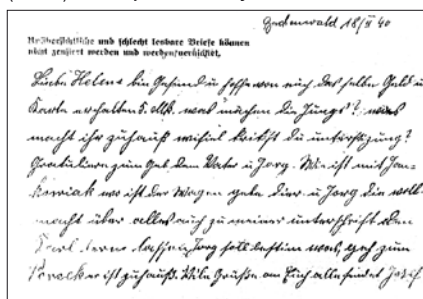 Buchenwald 18/II 40
Unübersichtliche und schlecht lesbare Briefe können
nicht zensiert werden und werden vernichtet.
Liebe Helene bin Gesund u hoffe von euch das selbe Geld u
Karte erhalten 5. Mk. was machen die Jungs? was
macht ihr zuhauß wiefiel kriekst du unterstüzung?
Gratuliere zum Geb. dem Vater u Jorg. Wie ist mit Jan-
kowiak wo ist der Wagen gebe dier u Jorg die voll-
macht über alles auch zu meiner unterschrift den
Karl lerne lassen Jorg soll was, geh zum
er ist zuhauß. Vile Grüße an Euch alle sendet Josef